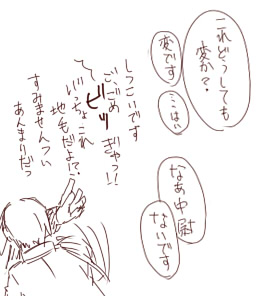 これどうしても
変か?
変です
ここはい
なあ中尉
ないです
しつこいです
ごごめ
ビッ
ぎゃっ!!
いっちょこれ
地毛だよ!?
すみませんつい
あんまりだっ